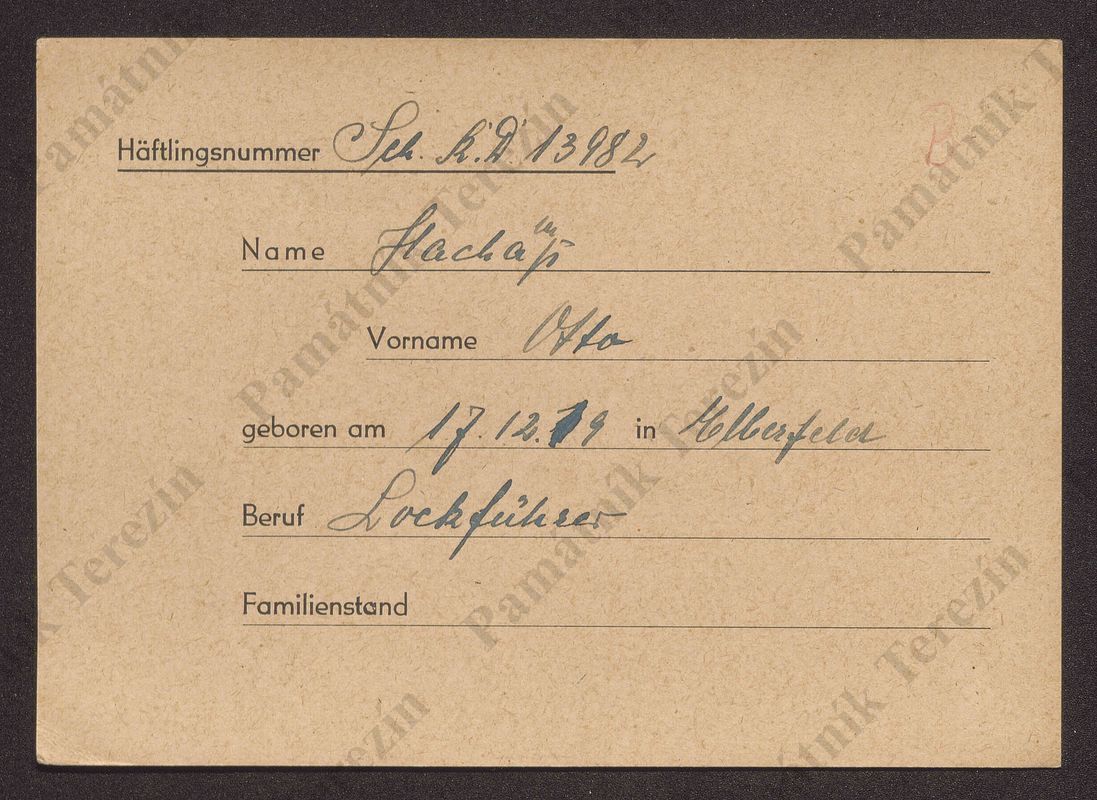 B
Häftlingsnummer Sch. R.D. 13982
Name
Vorname Otto
geboren am 17.12.19 in Elberfeld
Beruf Lockführer
Familienstand
Památník Terezín